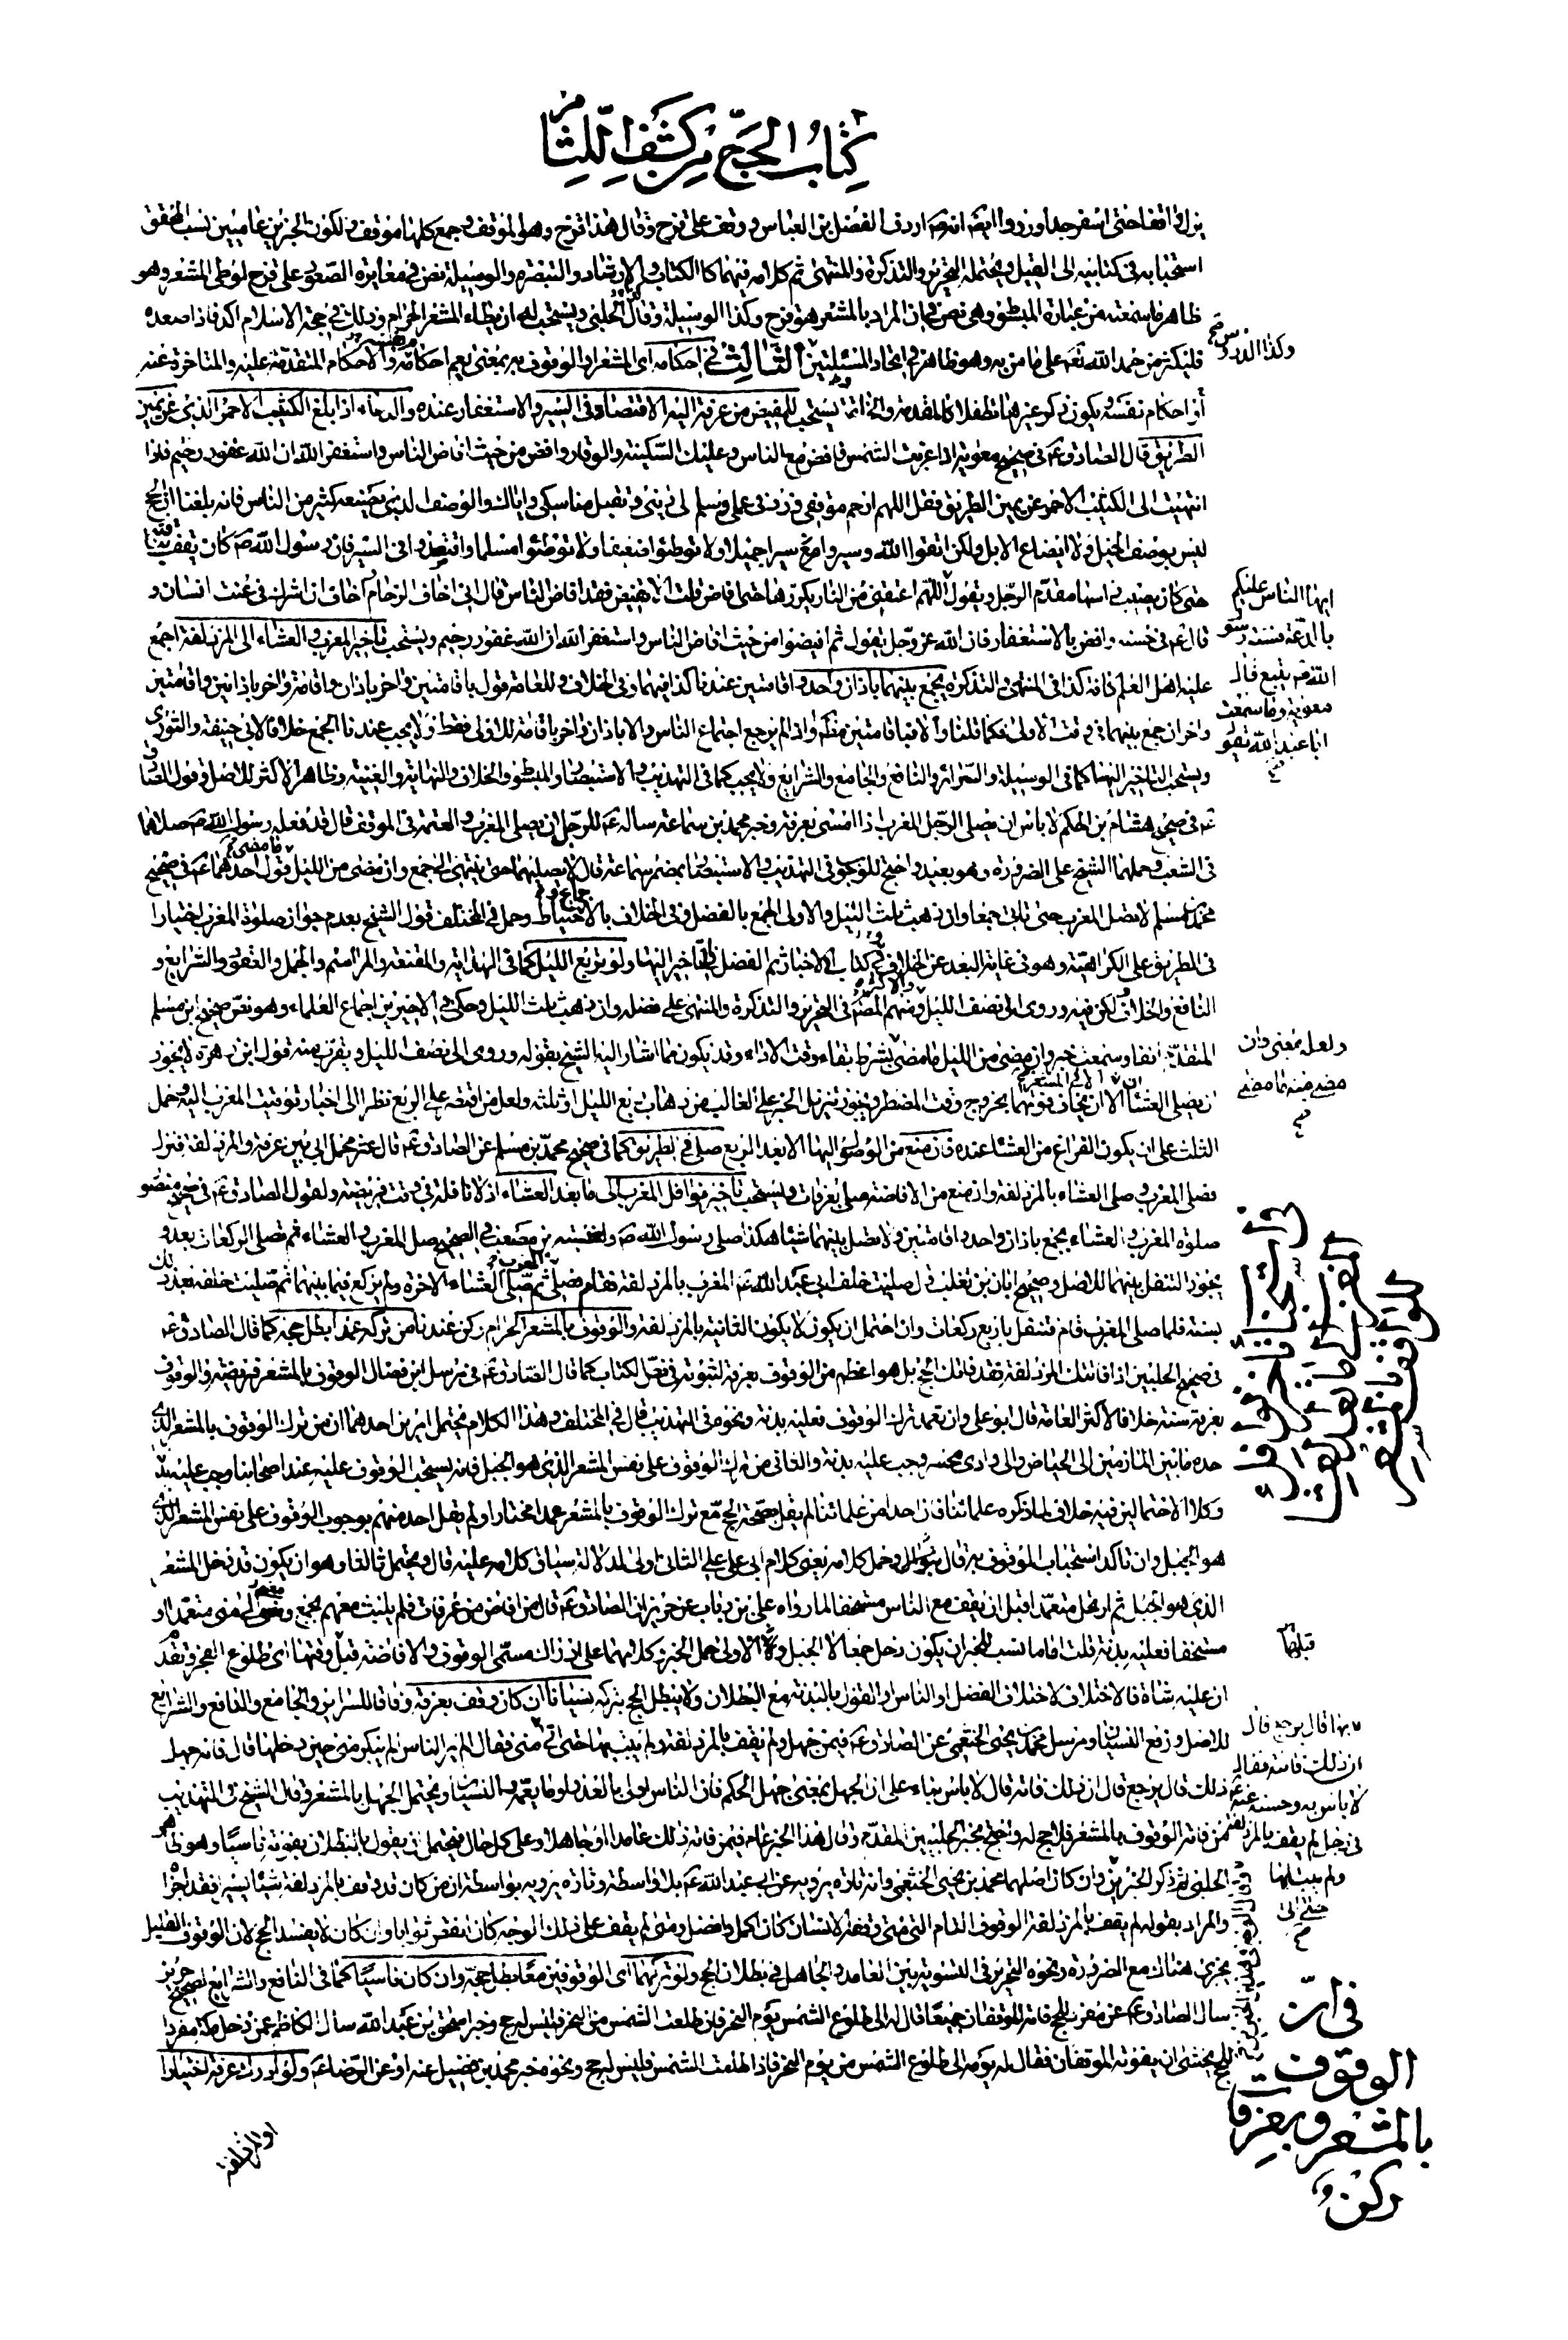 كتاب الحج من كشف اللثام
يزل واقفا حتى اسفر جدا ورووا ايضا انه ص اردف الفضل بن العباس ووقف على قزح وقال هذا قزح وهو الموقف وجمع كلها موقف ولكون الخبرين عاميين نسب المحقق
استحبابه في كتابيه الى القيل ويحتمله التحرير والتذكرة والمنتهى ثم كلامه فيهما كالكتاب والارشاد والتبصرة والوسيلة نص في مغايرة الصعود على قزح لوطي المشعر وهو
ظاهر ما سمعته من عبارة المبسوط وهي نص في ان المراد بالمشعر هو قزح وكذا الوسيلة وقال الحلبي ويستحب له ان يطاء المشعر الحرام وذلك في حجة الاسلام اكد فاذا صعده
فليكثر من حمد الله تعه على ما من به وهو ظاهر في اتحاد المسئلتين الثالث في احكامه اي المشعر او الوقوف به بمعنى يعم احكامه والاحكام المتقدمة عليه والمتاخرة عنه
وكذا الدروس صح
أو احكام نفسه ويكون ذكر غيرها تطفلا كالمقدمة والخاتمة يستحب للمفيض من عرفة اليه الاقتصاد في السير والاستغفار عنده والدعاء اذا بلغ الكثيب الاحمر الذي عن يمين
الطريق قال الصادق ع في صحيح معوية اذا غربت الشمس فافض مع الناس وعليك السكينة والوقار وافض من حيث افاض الناس واستغفر الله ان الله غفور رحيم فاذا
انتهيت الى الكثيب الاحمر عن يمين الطريق فقل اللهم ارحم موقفي وزد في عملي وسلم لي ديني وتقبل مناسكي واياك والوصف الذي يصنعه كثير من الناس فانه بلغنا ان الحج
ليس بوصف الخيل ولا ايضاع الابل ولكن اتقوا الله وسيروا سيرا جميلا ولا توطئوا ضعيفا ولا توطئوا مسلما واقتصدوا في السير فان رسول الله ص كان يقف بناقته
حتى كان يصيب راسها مقدم الرحل ويقول اللهم اعتقني من النار يكررها حتى افاض قلت الا تفيض فقد افاض الناس قال اني اخاف الزحام اخاف ان اشرك في عنت انسان و
ايها الناس عليكم
بالدعة فسنة رسو
الله ص يتبع قال
معوية وسمعت
ابا عبد الله يقو
صح
قال ع في حسنه وافض بالاستغفار فان الله عز وجل يقول ثم افيضوا من حيث افاض الناس واستغفر الله ان الله غفور رحيم ويستحب تاخير المغرب والعشاء الى المزدلفة اجمع
عليه اهل العلم كافة كذا في المنتهى والتذكرة يجمع بينهما باذان واحد واقامتين عندنا كذا فيهما وفي الخلاف وللعامة قول باقامتين واخر باذان واقامة واخر باذانين واقامتين
واخر ان جمع بينهما في وقت الاولى فكما قلنا والا فباقامتين واذا لم يرج اجتماع الناس والا باذان واخر باقامة للاولى فقط ولا يجب عندنا الجمع خلافا لابي حنيفة والثوري
ويستحب التاخير اليها كما في الوسيلة والسرائر والنافع والجامع والشرايع ولا يجب كما في التهذيب والاستبصار والمبسوط والخلاف والنهاية والغنية وظاهر الاكثر للاصل وقول الصادق
ع في صحيح هشام بن الحكم لا باس ان يصلي الرجل المغرب اذا امسى بعرفة وخبر محمد بن سماعة ساله ع للرجل ان يصلي المغرب والعتمة في الموقف قال قد فعله رسول الله ص صلاهما
في الشعب وحملهما الشيخ على الضرورة وهو بعيد واحتج للوجوب في التهذيب والاستبصار بمضمر سماعة قال لا يصليهما حتى ينتهي الى جمع وان مضى من الليل ما مضى وقول احدهما ع في صحيح
محمد بن مسلم لا تصل المغرب حتى تاتي جمعا وان ذهب ثلث الليل والاولى الجمع بالفضل وفي الخلاف بالاحتياط وحمل في المختلف قول الشيخ بعدم جواز صلوة المغرب اختيارا
في الطريق على الكراهية وهو في غاية البعد عن الخلاف وكتابي الاخبار ثم الفضل في التاخير اليها ولو تربع الليل كما في الهداية والمقنعة والمراسم والجمل والعقود والشرايع و
النافع والخلاف لكن فيه وروى الى نصف الليل ومنهم المصنف في التحرير والتذكرة والمنتهى على فضله وان ذهب ثلث الليل وحكى في الاخيرين اجماع العلماء وهو نص صحيح ابن مسلم
المتقدم انفا وسمعت خبر وان مضى من الليل ما مضى بشرط بقاء وقت الاداء وقد يكون مما اشار اليه الشيخ بقوله وروى الى نصف الليل ويقرب منه قول ابن زهرة لا يجوز
ولعله بمعنى وان
مضى منه ما مضى
صح
ان يصلي العشاء الا ان يخاف فوتهما بخروج وقت المضطر ويجوز تنزيل الخبر على الغالب من ذهاب ربع الليل او ثلثه ولعل من اقتصر على الربع نظر الى اخبار توقيت المغرب اليه وحمل
الثلث على ان يكون الفراغ من العشاء عنده فان منع من الوصول اليها الا بعد الربع صلى في الطريق كما في صحيح محمد بن مسلم عن الصادق ع قال عثر محمل ابي بين عرفة والمزدلفة فنزل
فصلى المغرب وصلى العشاء بالمزدلفة وان منع من الافاضة صلى بعرفات ويستحب تاخير نوافل المغرب الى ما بعد العشاء اذ لا نافلة في وقت فريضة ولقول الصادق ع في صحيح منصور
صلوة المغرب والعشاء بجمع باذان واحد واقامتين ولا تصل بينهما شيئا هكذا صلى رسول الله ص ولعنبسة بن مصعب في الصحيح صل المغرب والعشاء ثم تصلي الركعات بعد و
يجوز التنفل بينهما للاصل وصحيح ابان بن تغلب قال صليت خلف ابي عبد الله ع المغرب بالمزدلفة فقام فصلى المغرب ثم صلى العشاء الاخرة ولم يركع فيما بينهما ثم صليت خلفه بعد ذلك
بسنة فلما صلى المغرب قام فتنفل باربع ركعات وان احتمل ان يكون لا يكون الثانية بالمزدلفة والوقوف بالمشعر الحرام ركن عندنا من تركه عمدا بطل حجه كما قال الصادق ع
في صحيح الحلبيين اذا فاتتك المزدلفة فقد فاتك الحج بل هو اعظم من الوقوف بعرفة لثبوته في نص الكتاب كما قال الصادق ع في مرسل ابن فضال الوقوف بالمشعر فريضة والوقوف
بعرفة سنة خلافا لاكثر العامة قال ابو علي وان تعمد ترك الوقوف فعليه بدنة ونحوه في التهذيب قال في المختلف وهذا الكلام يحتمل امرين احدهما ان من ترك الوقوف بالمشعر الذي
حده ما بين المازمين الى الحياض والى وادي محسر وجب عليه بدنة والثاني من ترك الوقوف على نفس المشعر الذي هو الجبل فانه يستحب الوقوف عليه عند اصحابنا وجب عليه بدنة
وكلا الاحتمالين فيه خلاف لما ذكره علمائنا فان احدا من علمائنا لم يقل بصحة الحج مع ترك الوقوف بالمشعر عمدا مختارا ولم يقل احد منهم بوجوب الوقوف على نفس المشعر الذي
هو الجبل وان تاكد استحباب الوقوف به قال وحمل كلامه يعني كلام ابي علي على الثاني اولى لدلالة سياق كلامه عليه قال ويحتمل ثالثا وهو ان يكون قد دخل المشعر
الذي هو الجبل ثم ارتحل متعمدا قبل ان يقف مع الناس مستخفا لما رواه علي بن رئاب عن حريز ان الصادق ع قال من افاض من عرفات فلم يلبث معهم بجمع ومضى الى منى متعمدا او
مستخفا فعليه بدنة قلت فاما نسب للخبر ان يكون دخل جمعا لا الجبل والاولى حمل الخبرين كلاهما على ادراك مسمى الوقوف والافاضة قبل وقتها اي طلوع الفجر وتقدم
قبلها
ان عليه شاة فالاختلاف لاختلاف الفضل او الناس او القول بالبدنة مع البطلان ولا يبطل الحج بتركه نسيانا ان كان وقف بعرفة وفاقا للسرائر والجامع والنافع والشرايع
للاصل ورفع النسيان ومرسل محمد بن يحيى الخثعمي عن الصادق ع فيمن جهل ولم يقف بالمزدلفة ولم يبت بها حتى اتى منى فقال الم ير الناس الم ينكر منى حين دخلها قال فانه جهل
ذلك قال يرجع قال ان ذلك فاته قال لا باس بناء على ان الجهل بمعنى جهل الحكم فان الناس اولى بالعذر او ما يعمه والنسيان ويحتمل الجهل بالمشعر وقال الشيخ في التهذيب
من فاته الوقوف بالمشعر فلا حج له واحتج بخبر الحلبيين المتقدم وقال هذا الخبر عام فيمن فاته ذلك عامدا او جاهلا وعلى كل حال فيحتمل ان يقول بالبطلان بفوته ناسيا وهو ظاهر
الحلبي ثم ذكر الخبرين وان كان اصلهما محمد بن يحيى الخثعمي وانه تارة يرويه عن ابي عبد الله ع بلا واسطة وتارة يرويه بواسطة ان من كان قد وقف بالمزدلفة شيئا يسيرا فقد اجزأ
والمراد بقوله لم يقف بالمزدلفة الوقوف التام الذي متى وقفه الانسان كان اكمل وافضل ومتى لم يقف على ذلك الوجه كان انقص ثوابا وان كان لا يفسد الحج لان الوقوف القليل
يجزي هناك مع الضرورة ونحوه التحرير في التسوية بين العامد والجاهل في بطلان الحج ولو تركهما اي الوقوفين معا بطل حجه وان كان ناسيا كما في النافع والشرايع لصحيح حريز
سال الصادق ع عن مفرد للحج فاته الموقفان جميعا قال له الى طلوع الشمس يوم النحر فان طلعت الشمس من النحر فليس له حج وخبر اسحق بن عبد الله سال الكاظم ع عن دخل مكة مفردا
للحج يخشى ان يفوته الموقفان فقال له يومه الى طلوع الشمس من يوم النحر فاذا طلعت الشمس فليس له حج ونحوه خبر محمد بن فضيل عنه او عن الرضا ع ولو ادرك عرفة اختيارا
بها قال يرجع قال
ان ذلك فاته فقال
لا باس به وحسنه عنه ع
في رجل لم يقف بالمزدلفة
ولم يبت بها
حتى اتى
صح
في ان
الوقوف
بالمشعر وبعرفا
ت
ركن
او المزدلفة